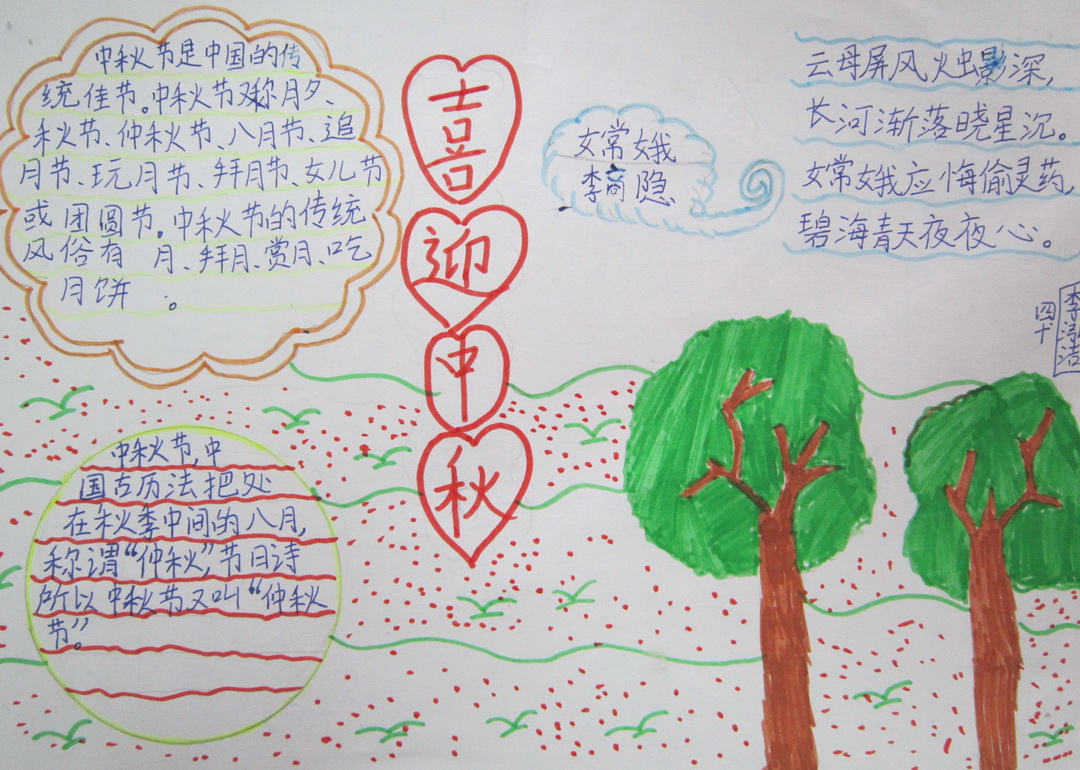 中秋节是中国的传
统佳节。中秋节又称月夕、
秋节、仲秋节、八月节、追
月节、玩月节、拜月节、女儿节
或团圆节。中秋节的传统
风俗有 月、拜月、赏月、吃
月饼 。
喜
迎
中
秋
嫦娥
李商隐
云母屏风烛影深,
长河渐落晓星沉。
嫦娥应悔偷灵药,
碧海青天夜夜心。
四十
李
洁
中秋节,中
国古历法把处
在秋季中间的八月,
称谓“仲秋”,节日诗
所以中秋节又叫“仲秋
节”。